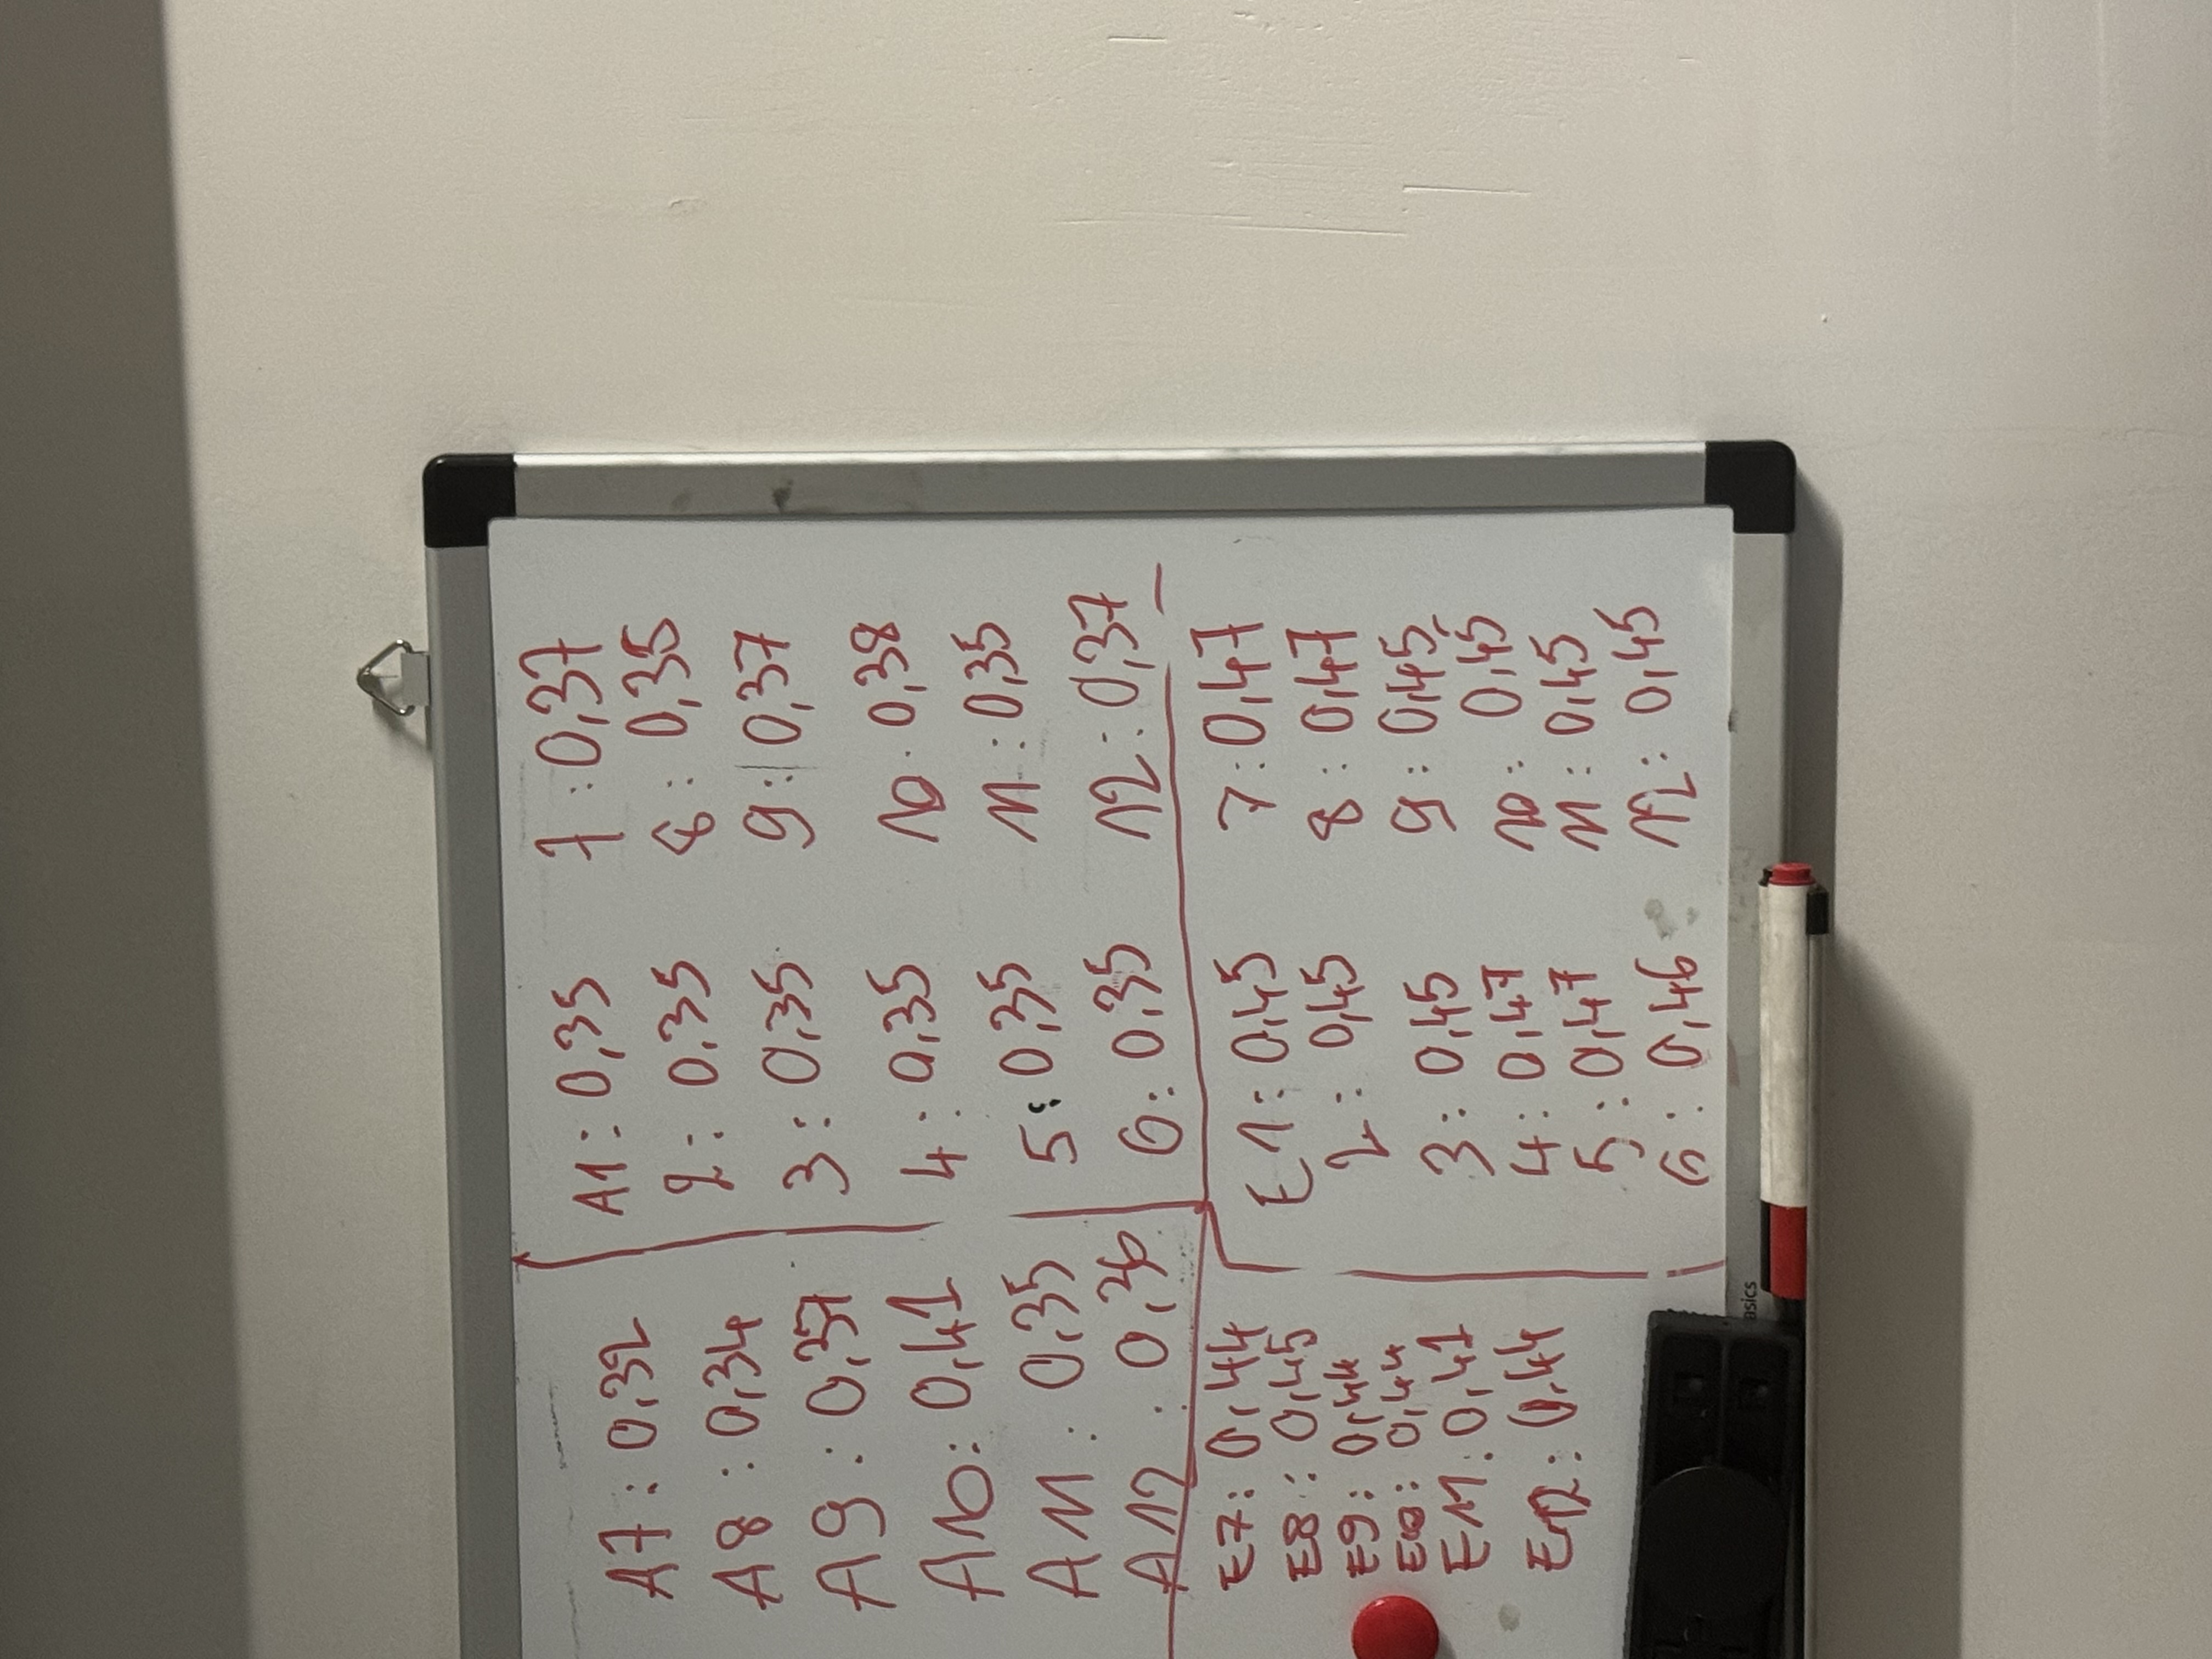 A7: 0,32
A8: 0,34
A9: 0,37
A10: 0,41
A11: 0,35
A12: 0,36
A1: 0,35
2: 0,35
3: 0,35
4: 0,35
5: 0,35
6: 0,35
7: 0,37
8: 0,35
9: 0,37
10: 0,38
11: 0,35
12: 0,37
E7: 0,44
E8: 0,45
E9: 0,44
E10: 0,44
E11: 0,41
E12: 0,44
E1: 0,45
2: 0,45
3: 0,45
4: 0,47
5: 0,47
6: 0,46
7: 0,47
8: 0,47
9: 0,45
10: 0,45
11: 0,45
12: 0,45
asics